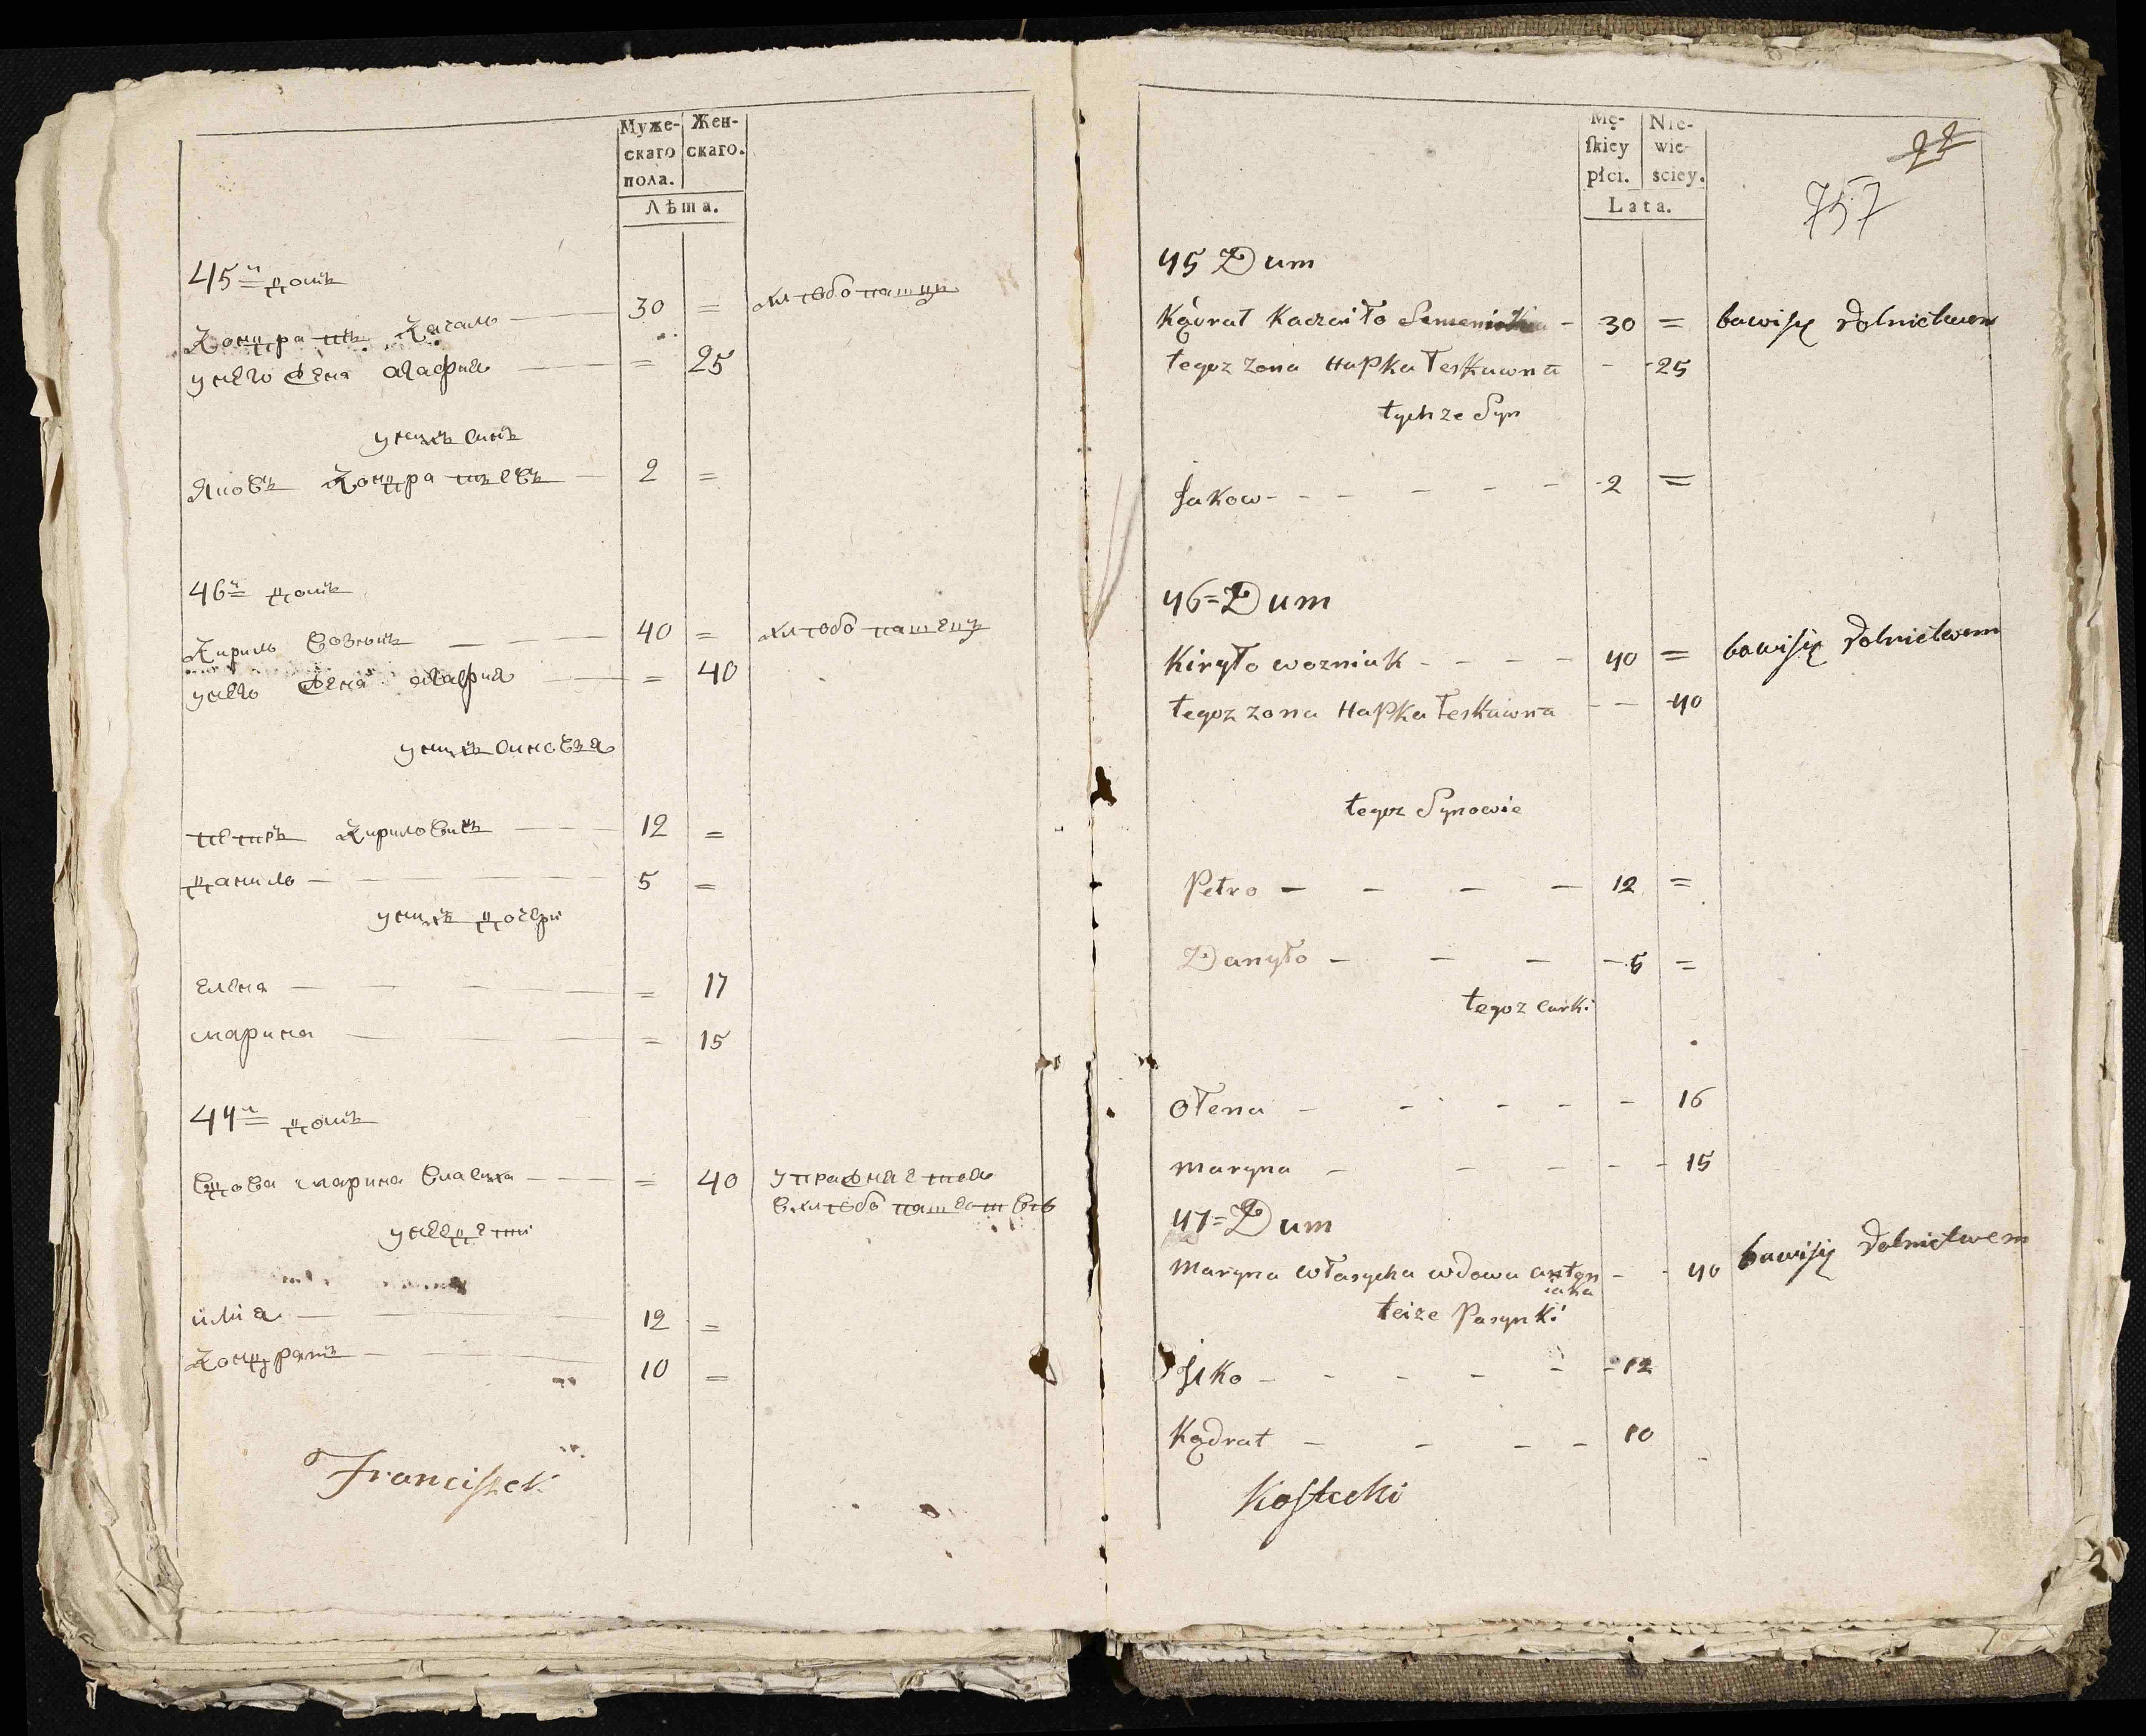 Муже-
скаго
пола.
Жен-
скаго.
Лѣта.
45й домъ
Кондратъ Качало — 30 = хлѣбопашецъ
у него жена Агафия — = 25
у нихъ синъ
Яковъ Кондратьевъ — 2 =
46й домъ
Кирило Вознюкъ — 40 = хлѣбопашецъ
у него жена Агафия — = 40
у нихъ синовья
Петръ Кириловичъ — 12 =
Данило — 5 =
у нихъ дочери
Елена — = 17
Марина — = 15
47й домъ
Вдова Марина Власиха — = 40 упражняется
в хлѣбопашествѣ
у нее дети
Илія — 12 =
Кондратъ — 10 =
Franciszek
Mę-
skiey
płci.
Nie-
wie-
ściey.
Lata.
22
757
45 Dum
Kądrat Kaczało - 30 = bawisię Rolnictwem
tegoz zona Hapka Leskuwna - - 25
tychze Syn
Jakow - - - - - - 2 =
46 = Dum
Kiryło wozniuk - - - - 40 = bawisię Rolnictwem
tegoz zona Hapka Leskuwna - - 40
tegoz Synowie
Petro - - - - 12 =
Danyło - - - - 5 =
tegoz curki
Ołena - - - - - 16
Maryna - - - - - 15
47 = Dum
Maryna własycha wdowa - - 40 bawisię Rolnictwem
teize Pasynki
Jlko - - - - - - 12
Kądrat - - - - 10
Kostecki